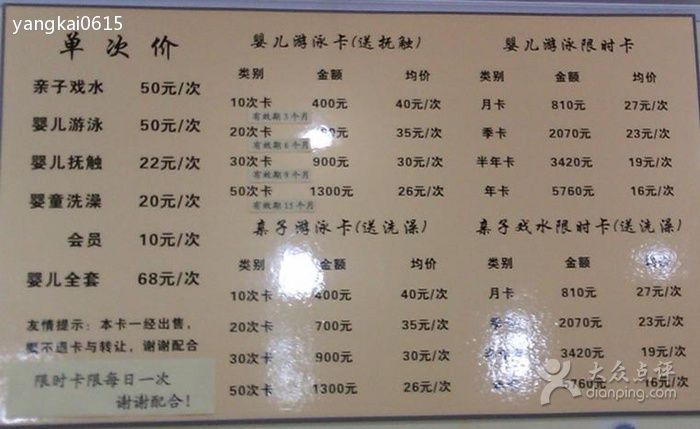 yangkai0615
单次价
亲子戏水 50元/次
婴儿游泳 50元/次
婴儿抚触 22元/次
婴童洗澡 20元/次
会员 10元/次
婴儿全套 68元/次
友情提示：本卡一经出售，
不退卡与转让，谢谢配合
限时卡限每日一次
谢谢配合！
婴儿游泳卡(送抚触)
类别 金额 均价
10次卡 400元 40元/次
有效期3个月
20次卡 元 35元/次
有效期6个月
30次卡 900元 30元/次
有效期9个月
50次卡 1300元 26元/次
有效期15个月
婴儿游泳限时卡
类别 金额 均价
月卡 810元 27元/次
季卡 2070元 23元/次
半年卡 3420元 19元/次
年卡 5760元 16元/次
亲子游泳卡(送洗澡)
类别 金额 均价
10次卡 400元 40元/次
20次卡 700元 35元/次
30次卡 900元 30元/次
50次卡 1300元 26元/次
亲子戏水限时卡(送洗澡)
类别 金额 均价
月卡 810元 27元/次
2070元 23元/次
3420元 19元/次
5760元 16元/次
大众点评
dianping.com